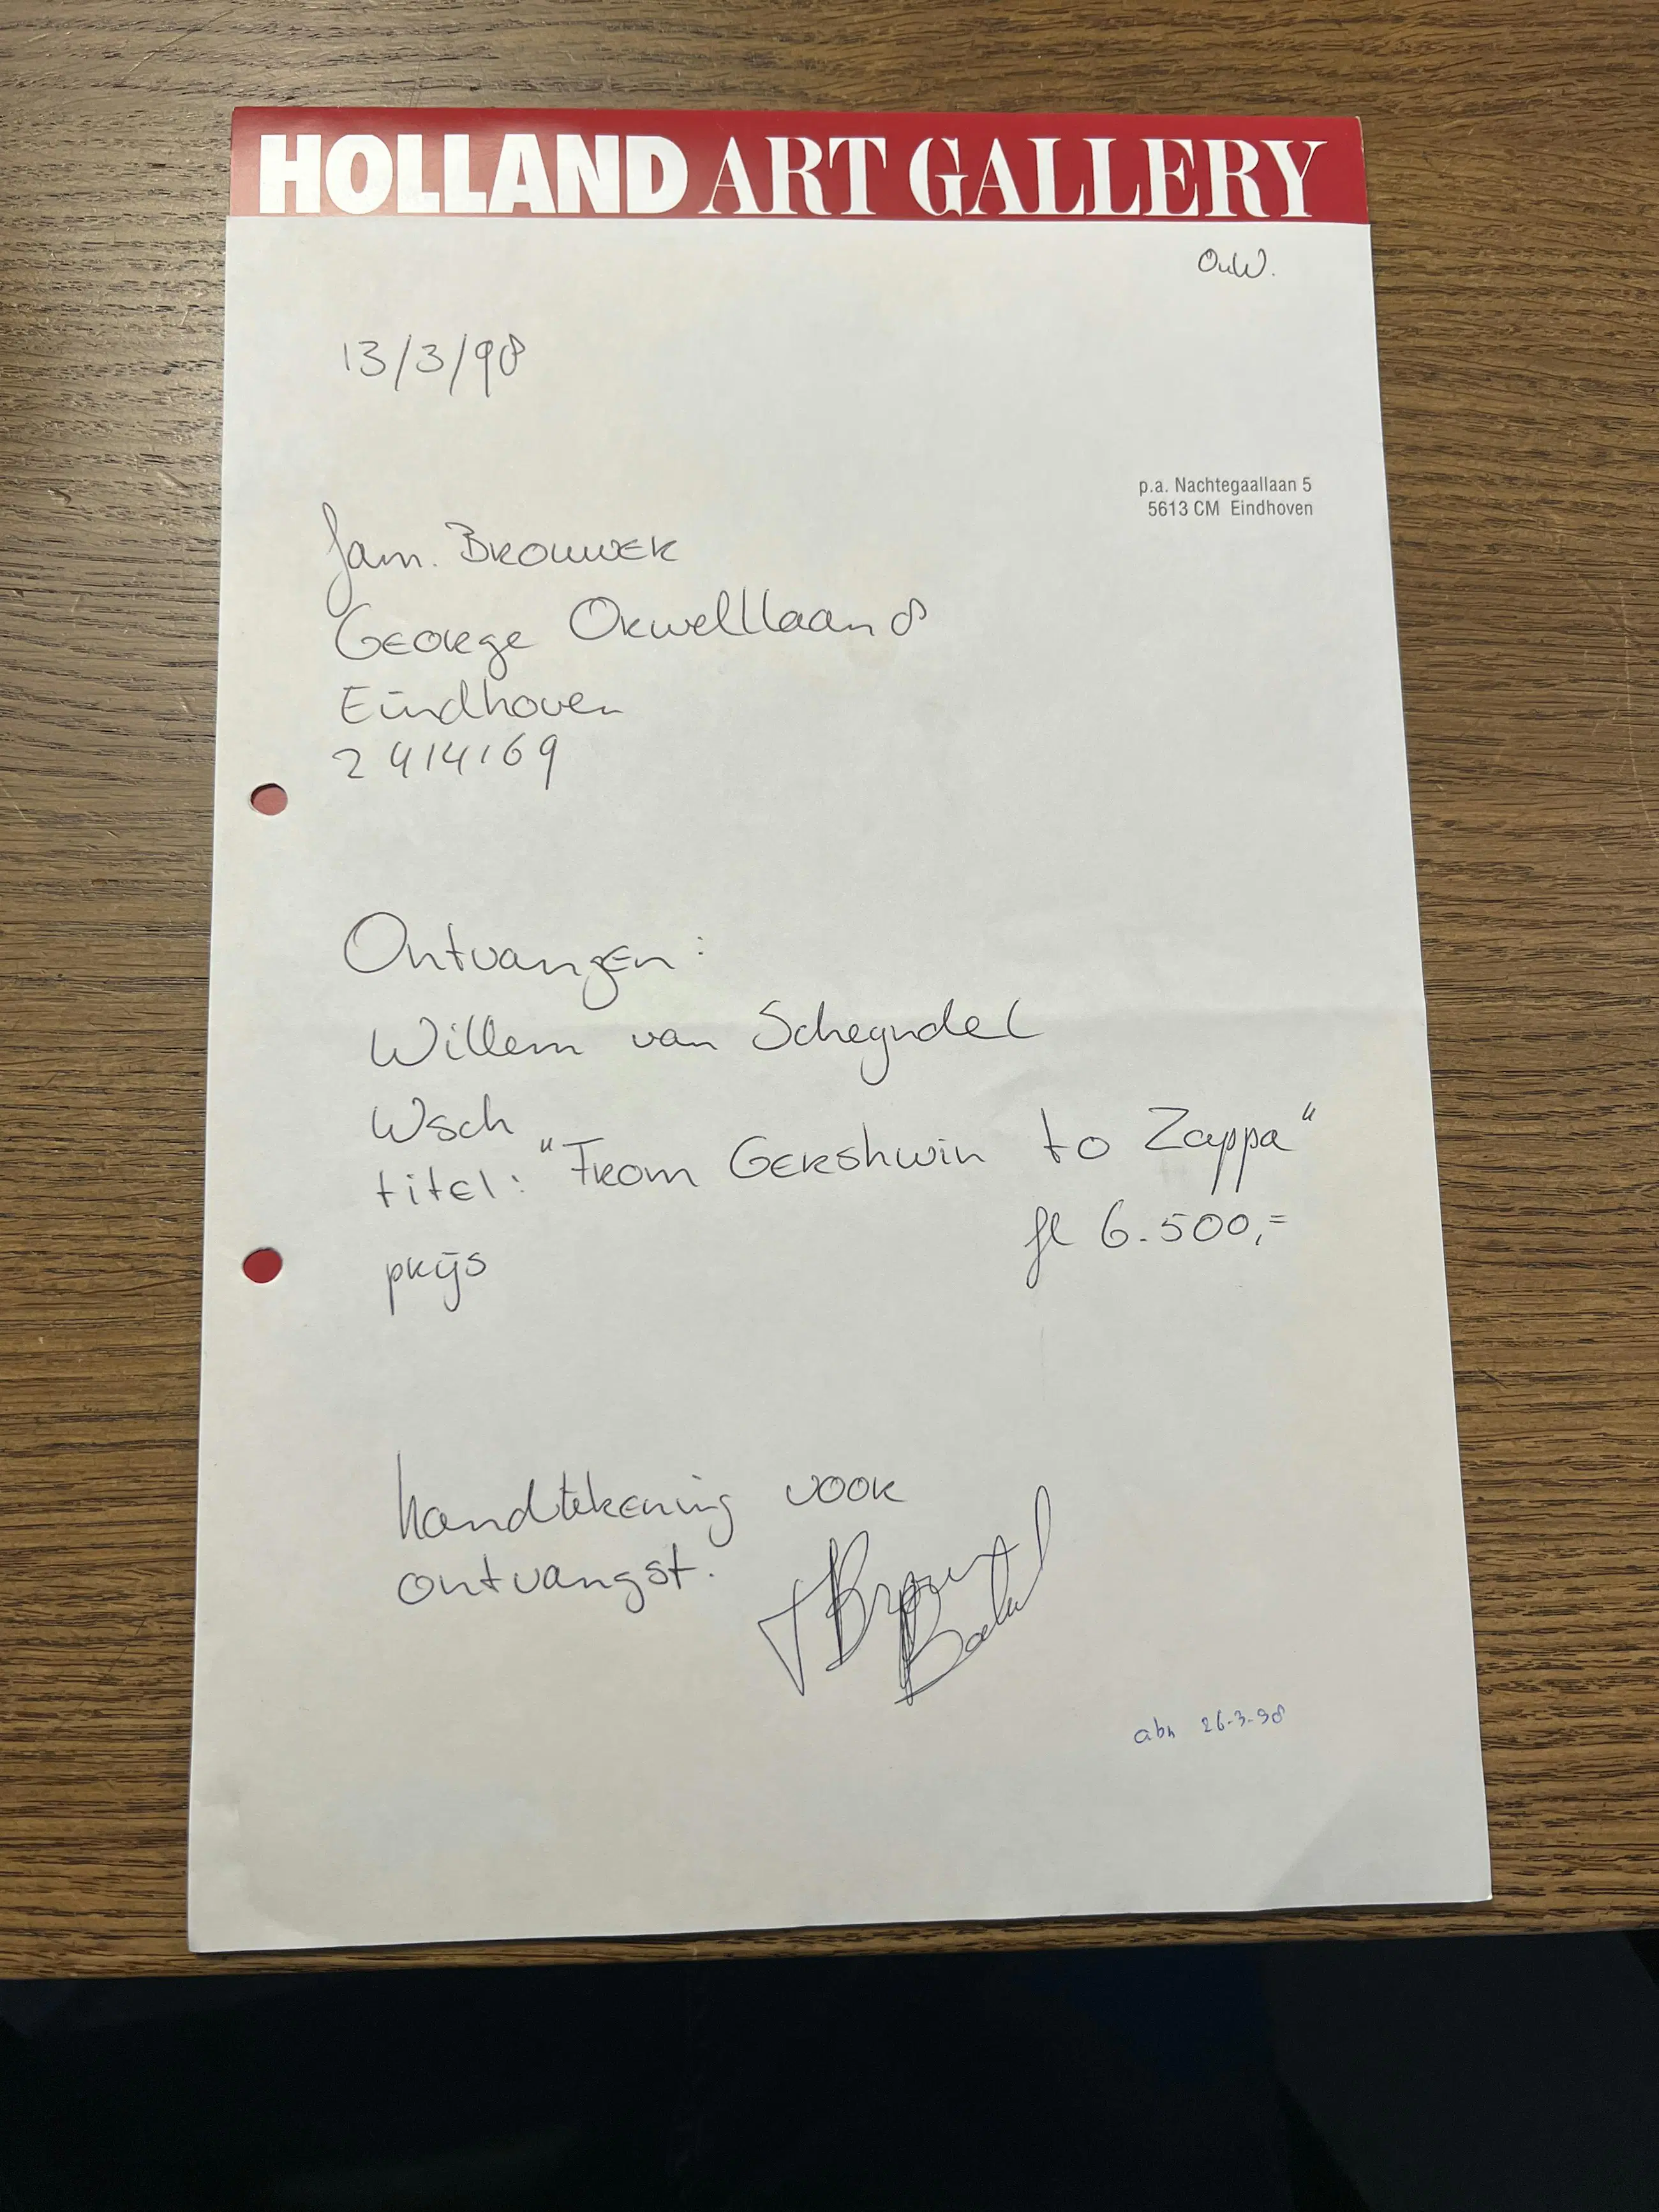 HOLLAND ART GALLERY
OuW.
13/3/98
p.a. Nachtegaallaan 5
5613 CM Eindhoven
fam. BROUWER
George Orwelllaan 8
Eindhoven
2414169
Ontvangen:
Willem van Scheyndel
Wsch
titel: "From Gershwin to Zappa"
prijs fl 6.500,=
handtekening voor
ontvangst.
abn 26-3-98